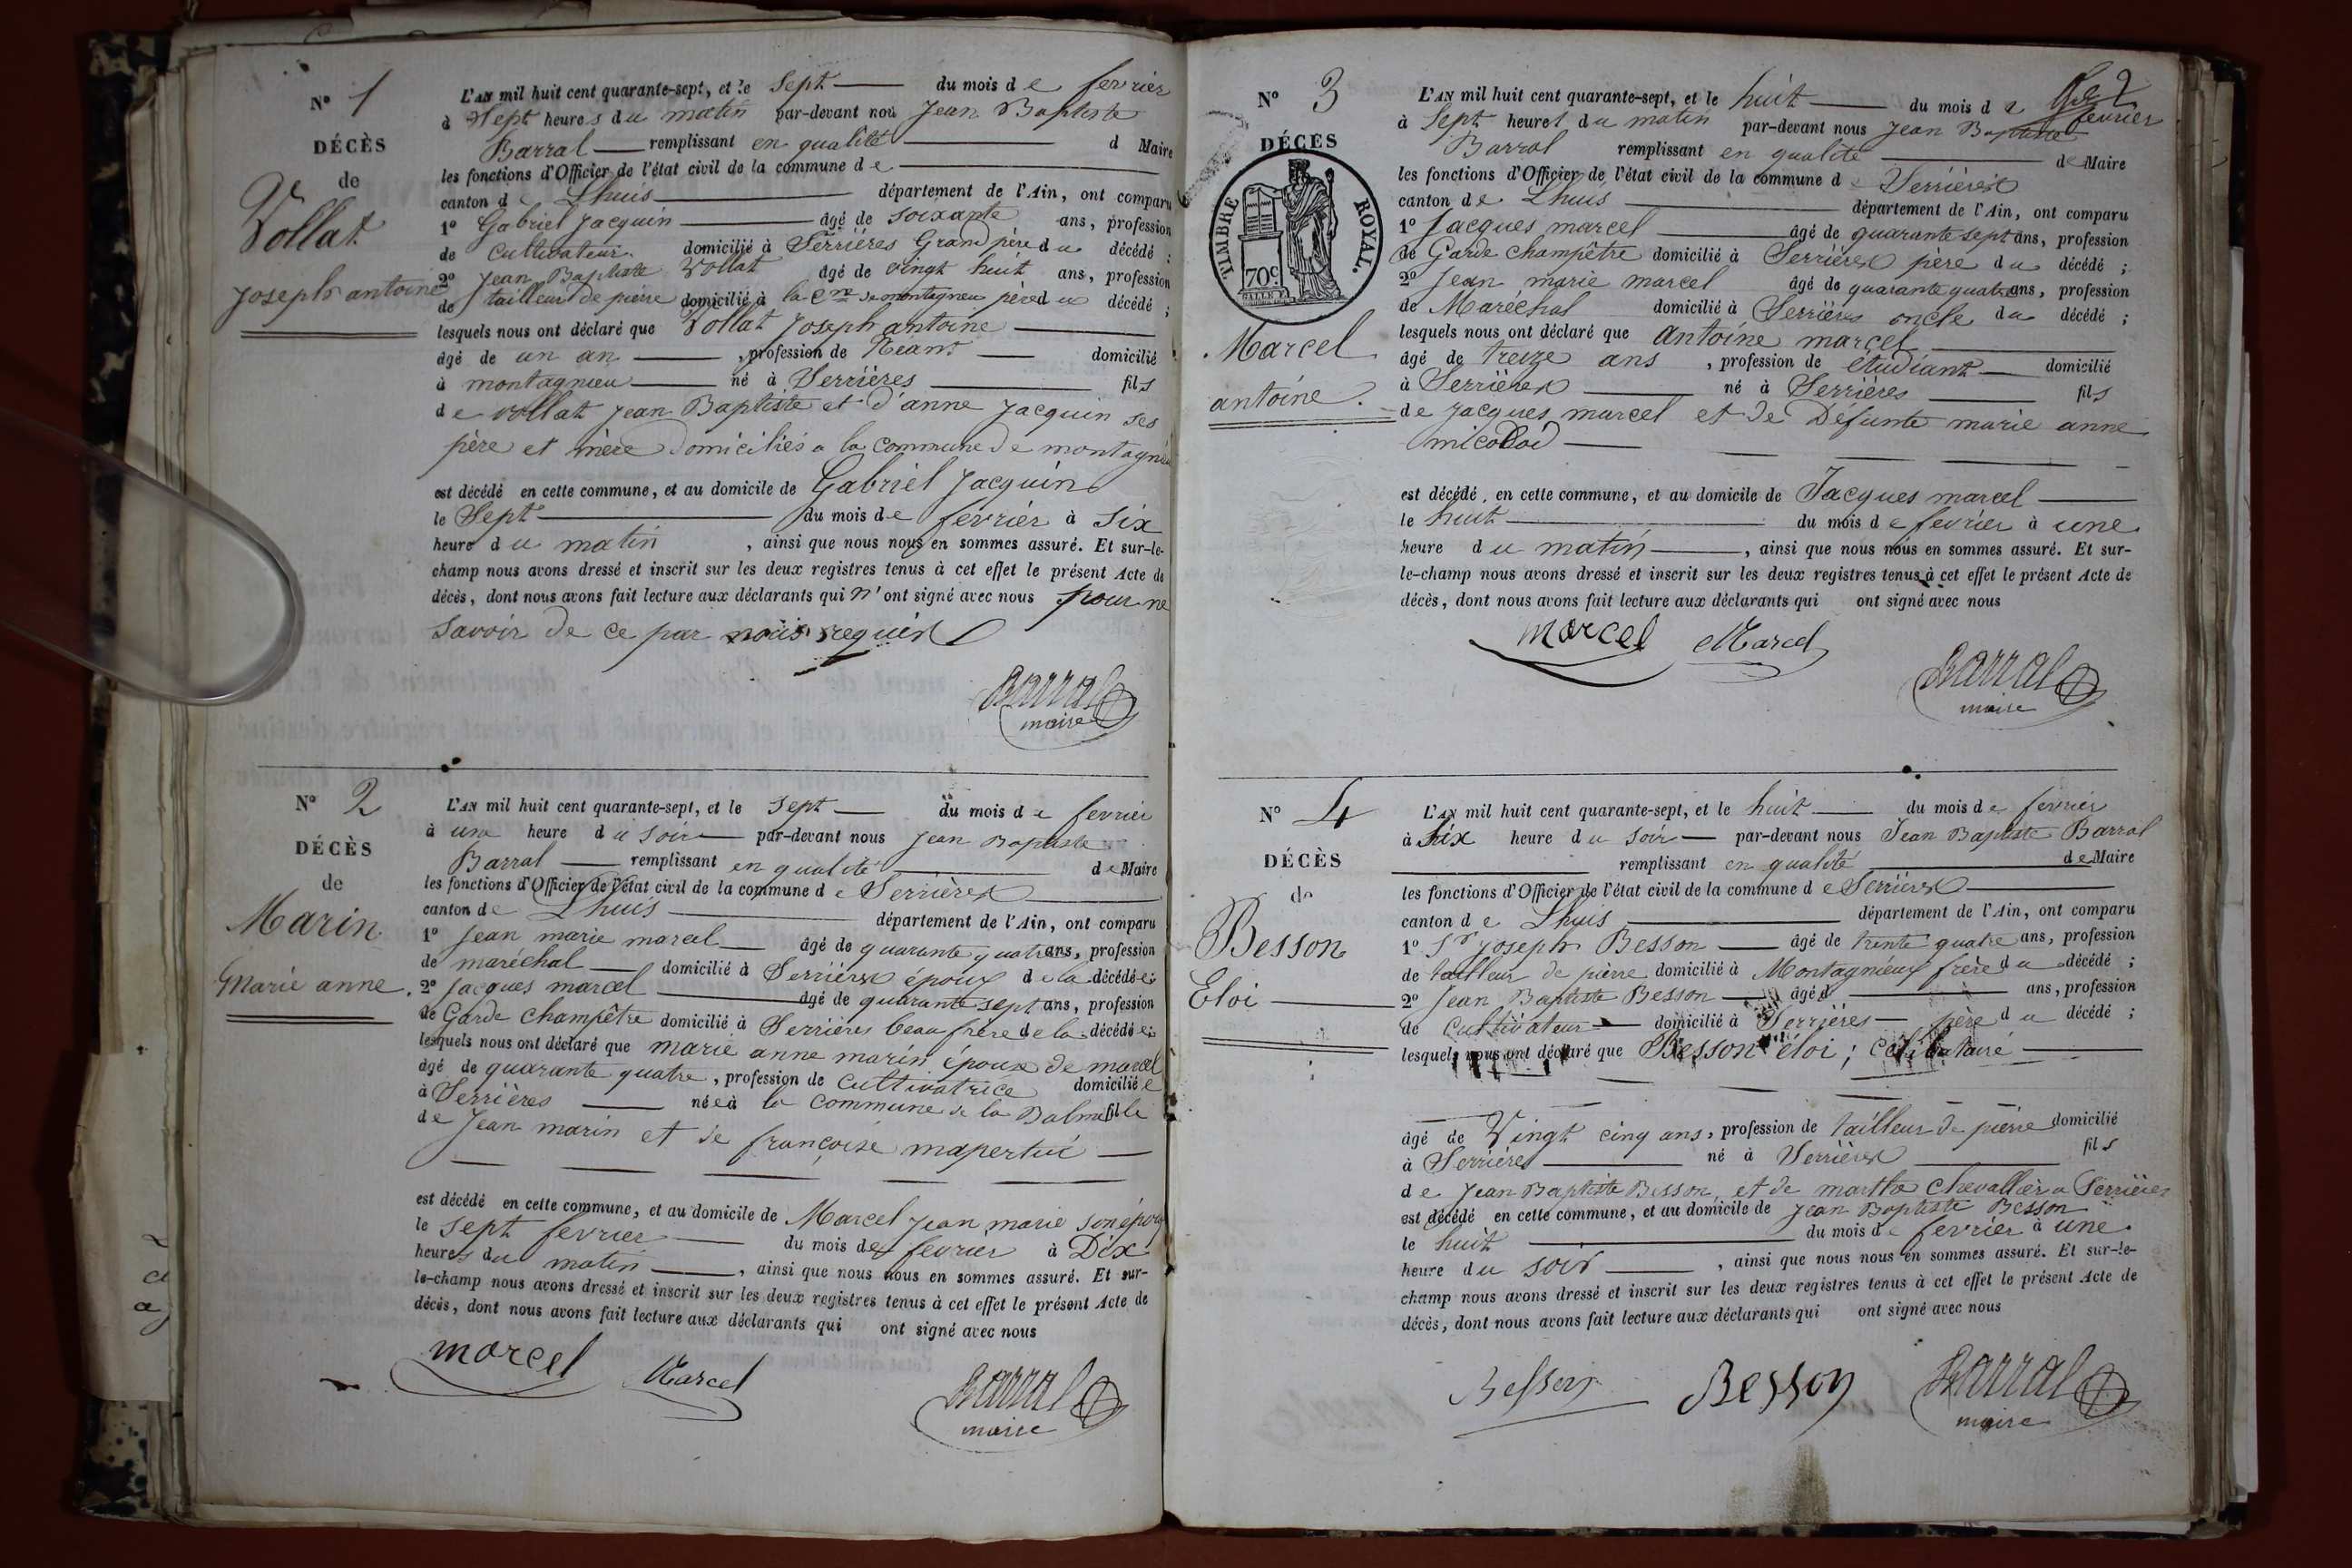 N° 1
DÉCÈS
de
Vollat
Joseph antoine
L'AN mil huit cent quarante-sept, et le Sept du mois de fevrier
à Sept heures du matin par-devant nou Jean Baptiste
Barral remplissant en qualité d Maire
les fonctions d'Officier de l'état civil de la commune de
canton de Lhuis département de l'Ain, ont comparu
1° Gabriel Jacquin âgé de soixante ans, profession
de Cultivateur domicilié à Serrières Grand père du décédé ;
2° Jean Baptiste Vollat âgé de vingt huit ans, profession
de tailleur de pierre domicilié à la Cne de montagneu père du décédé ;
lesquels nous ont déclaré que Vollat Joseph antoine
âgé de un an , profession de Néant domicilié
à montagnieu né à Serrières fils
de vollat Jean Baptiste et d'anne Jacquin ses
père et mère domiciliés a la commune de montagnieu
est décédé en cette commune, et au domicile de Gabriel Jacquin
le Sept du mois de fevrier à Six
heure du matin , ainsi que nous nous en sommes assuré. Et sur-le-
champ nous avons dressé et inscrit sur les deux registres tenus à cet effet le présent Acte de
décès, dont nous avons fait lecture aux déclarants qui n'ont signé avec nous pour ne
savoir de ce par nous requis
Barral
maire
N° 2
DÉCÈS
de
Marin
Marie anne.
L'AN mil huit cent quarante-sept, et le sept du mois de fevrier
à une heure du soir par-devant nous Jean Baptiste
Barral remplissant en qualité de Maire
les fonctions d'Officier de l'état civil de la commune de Serrières
canton de Lhuis département de l'Ain, ont comparu
1° Jean marie marcel âgé de quarante quatre ans, profession
de maréchal domicilié à Serrières époux de la décédée ;
2° Jacques marcel âgé de quarante sept ans, profession
de Garde champêtre domicilié à Serrières beau frère de la décédée ;
lesquels nous ont déclaré que marie anne marin épouse de marcel
âgé de quarante quatre , profession de cultivatrice domiciliée
à Serrières née à la commune de la Balme fille
de Jean marin et de françoise mapertui
est décédé en cette commune, et au domicile de Marcel Jean marie son époux
le sept fevrier du mois de fevrier à Dix
heures du matin , ainsi que nous nous en sommes assuré. Et sur-
le-champ nous avons dressé et inscrit sur les deux registres tenus à cet effet le présent Acte de
décès, dont nous avons fait lecture aux déclarants qui ont signé avec nous
marcel Marcel Barral
maire
2
N° 3
DÉCÈS
TIMBRE ROYAL.
70c.
Marcel
antoine.
L'AN mil huit cent quarante-sept, et le huit du mois de fevrier
à Sept heures du matin par-devant nous Jean Baptiste
Barral remplissant en qualité de Maire
les fonctions d'Officier de l'état civil de la commune de Serrières
canton de Lhuis département de l'Ain, ont comparu
1° Jacques marcel âgé de quarante sept ans, profession
de Garde champêtre domicilié à Serrières père du décédé ;
2° Jean marie marcel âgé de quarante quatre ans, profession
de Maréchal domicilié à Serrières oncle du décédé ;
lesquels nous ont déclaré que antoine marcel
âgé de treize ans , profession de étudiant domicilié
à Serrières né à Serrières fils
de Jacques marcel et de Défunte marie anne
est décédé, en cette commune, et au domicile de Jacques marcel
le huit du mois de fevrier à une
heure du matin , ainsi que nous nous en sommes assuré. Et sur-
le-champ nous avons dressé et inscrit sur les deux registres tenus à cet effet le présent Acte de
décès, dont nous avons fait lecture aux déclarants qui ont signé avec nous
marcel Marcel Barral
maire
N° 4
DÉCÈS
de
Besson
Eloi
L'AN mil huit cent quarante-sept, et le huit du mois de fevrier
à Six heure du soir par-devant nous Jean Baptiste Barral
remplissant en qualité de Maire
les fonctions d'Officier de l'état civil de la commune de Serrières
canton de Lhuis département de l'Ain, ont comparu
1° Sr Joseph Besson âgé de trente quatre ans, profession
de tailleur de pierre domicilié à Montagnieux frère du décédé ;
2° Jean Baptiste Besson âgé d ans, profession
de Cultivateur domicilié à Serrières père du décédé ;
lesquels nous ont déclaré que Besson éloi ; célibataire
âgé de Vingt cinq ans, profession de tailleur de pierre domicilié
à Serrières né à Serrières fils
de Jean Baptiste Besson, et de marthe Chevallier a Serrières
est décédé en cette commune, et au domicile de Jean Baptiste Besson
le huit du mois de fevrier à une
heure du soir , ainsi que nous nous en sommes assuré. Et sur-le-
champ nous avons dressé et inscrit sur les deux registres tenus à cet effet le présent Acte de
décès, dont nous avons fait lecture aux déclarants qui ont signé avec nous
Besson Besson Barral
maire